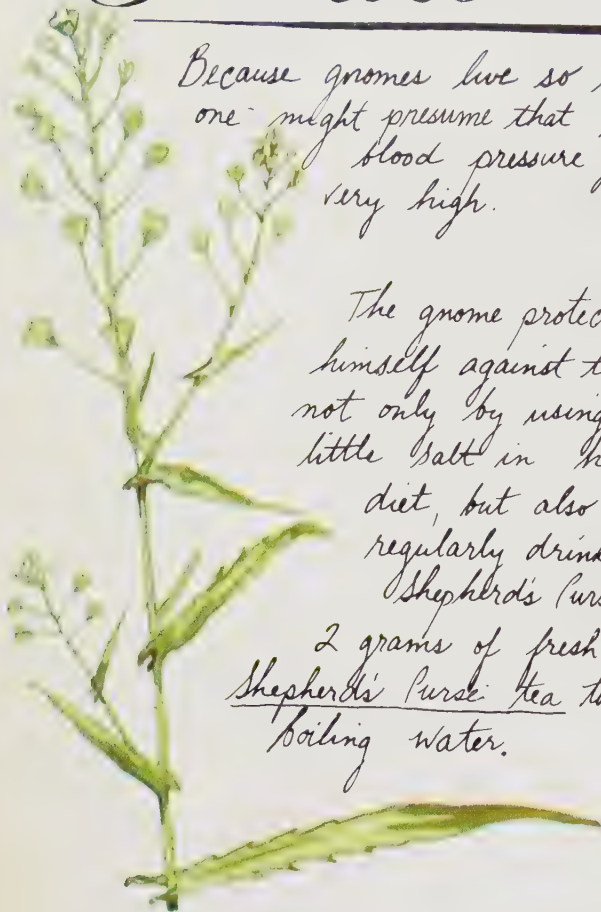 Because gnomes live so
one might presume that
blood pressure
very high.
The gnome protec
himself against t
not only by using
little salt in h
diet, but also
regularly drin
Shepherd's Purs
2 grams of fresh
Shepherd's Purse tea to
boiling water.